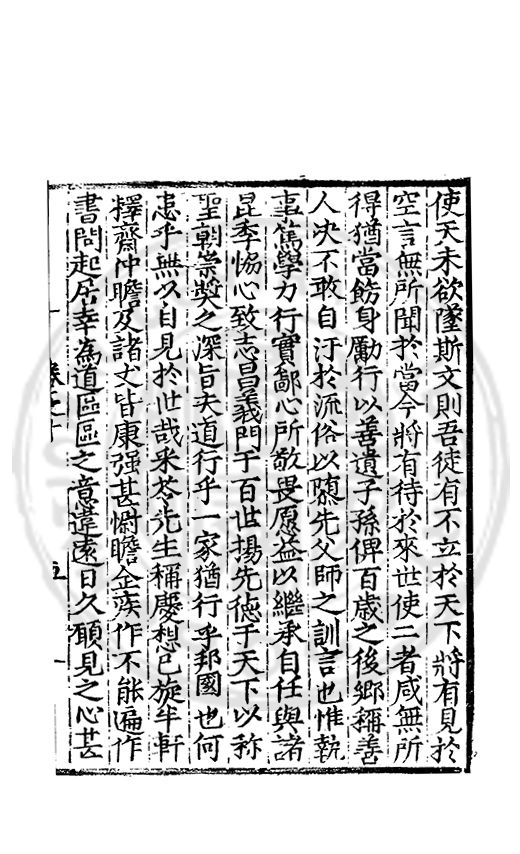 使天未欲墜斯文則吾徒有不立於天下將有見於
空言無所聞於當今將有待於來世使二者咸無所
得猶當飭身勵行以善遺子孫俾百歲之後鄉稱善
人决不敢自汙於流俗以隳先父師之訓言也惟執
事篤學力行實鄙心所敬畏愿益以繼承自任與諸
昆季恊心致志昌義門于百世揚先德于天下以称
聖朝崇奬之深旨夫道行乎一家猶行乎邦國也何
患乎無以自見於世哉采苓先生稱慶想已旋半軒
擇齋仲瞻及諸丈皆康强甚慰瞻企疾作不能遍作
書問起居幸為道區區之意違遠日久願見之心甚
卷之十
五